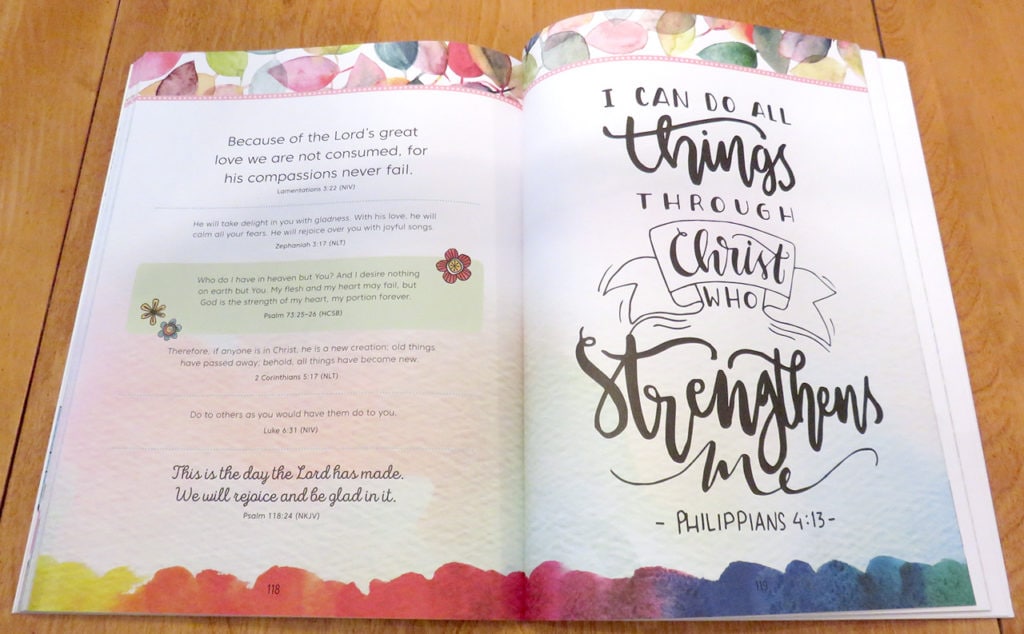 Because of the Lord's great
love we are not consumed, for
his compassions never fail.
Lamentations 3:22 (NIV)
He will take delight in you with gladness. With his love, he will
calm all your fears. He will rejoice over you with joyful songs.
Zephaniah 3:17 (NLT)
Who do I have in heaven but You? And I desire nothing
on earth but You. My flesh and my heart may fail, but
God is the strength of my heart, my portion forever.
Psalm 73:25-26 (HCSB)
Therefore, if anyone is in Christ, he is a new creation; old things
have passed away; behold, all things have become new.
2 Corinthians 5:17 (NLT)
Do to others as you would have them do to you.
Luke 6:31 (NIV)
This is the day the Lord has made.
We will rejoice and be glad in it.
Psalm 118:24 (NKJV)
118
I CAN DO ALL
things
THROUGH
Christ
WHO
Strengthens
me
- PHILIPPIANS 4:13 -
119